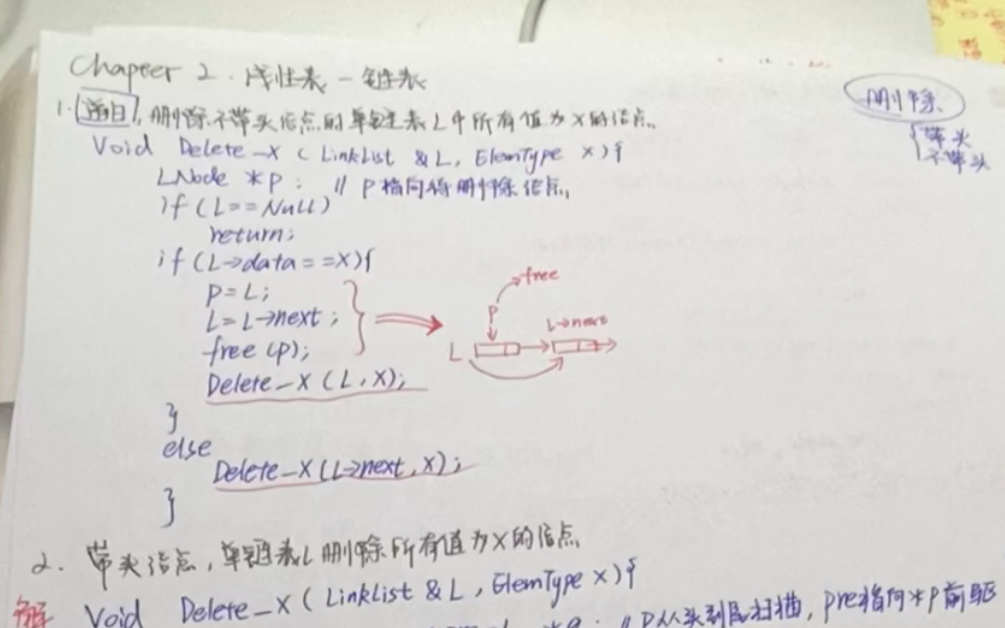 Chapter 2. 线性表-链表
1. 题目, 删除不带头结点的单链表L中所有值为X的结点。
删除
{带头
不带头
Void Delete_X ( LinkList & L, ElemType x){
LNode *P; // P指向将删除结点,
if (L==Null)
return;
if (L->data==X){
P=L;
L=L->next;
free(p);
Delete_X (L,X);
}
else
Delete_X(L->next,X);
}
free
P
L->next
L
2. 带头结点,单链表L删除所有值为X的结点
解 Void Delete_X ( LinkList & L, ElemType x){
// P从头到尾扫描, pre指向*P前驱